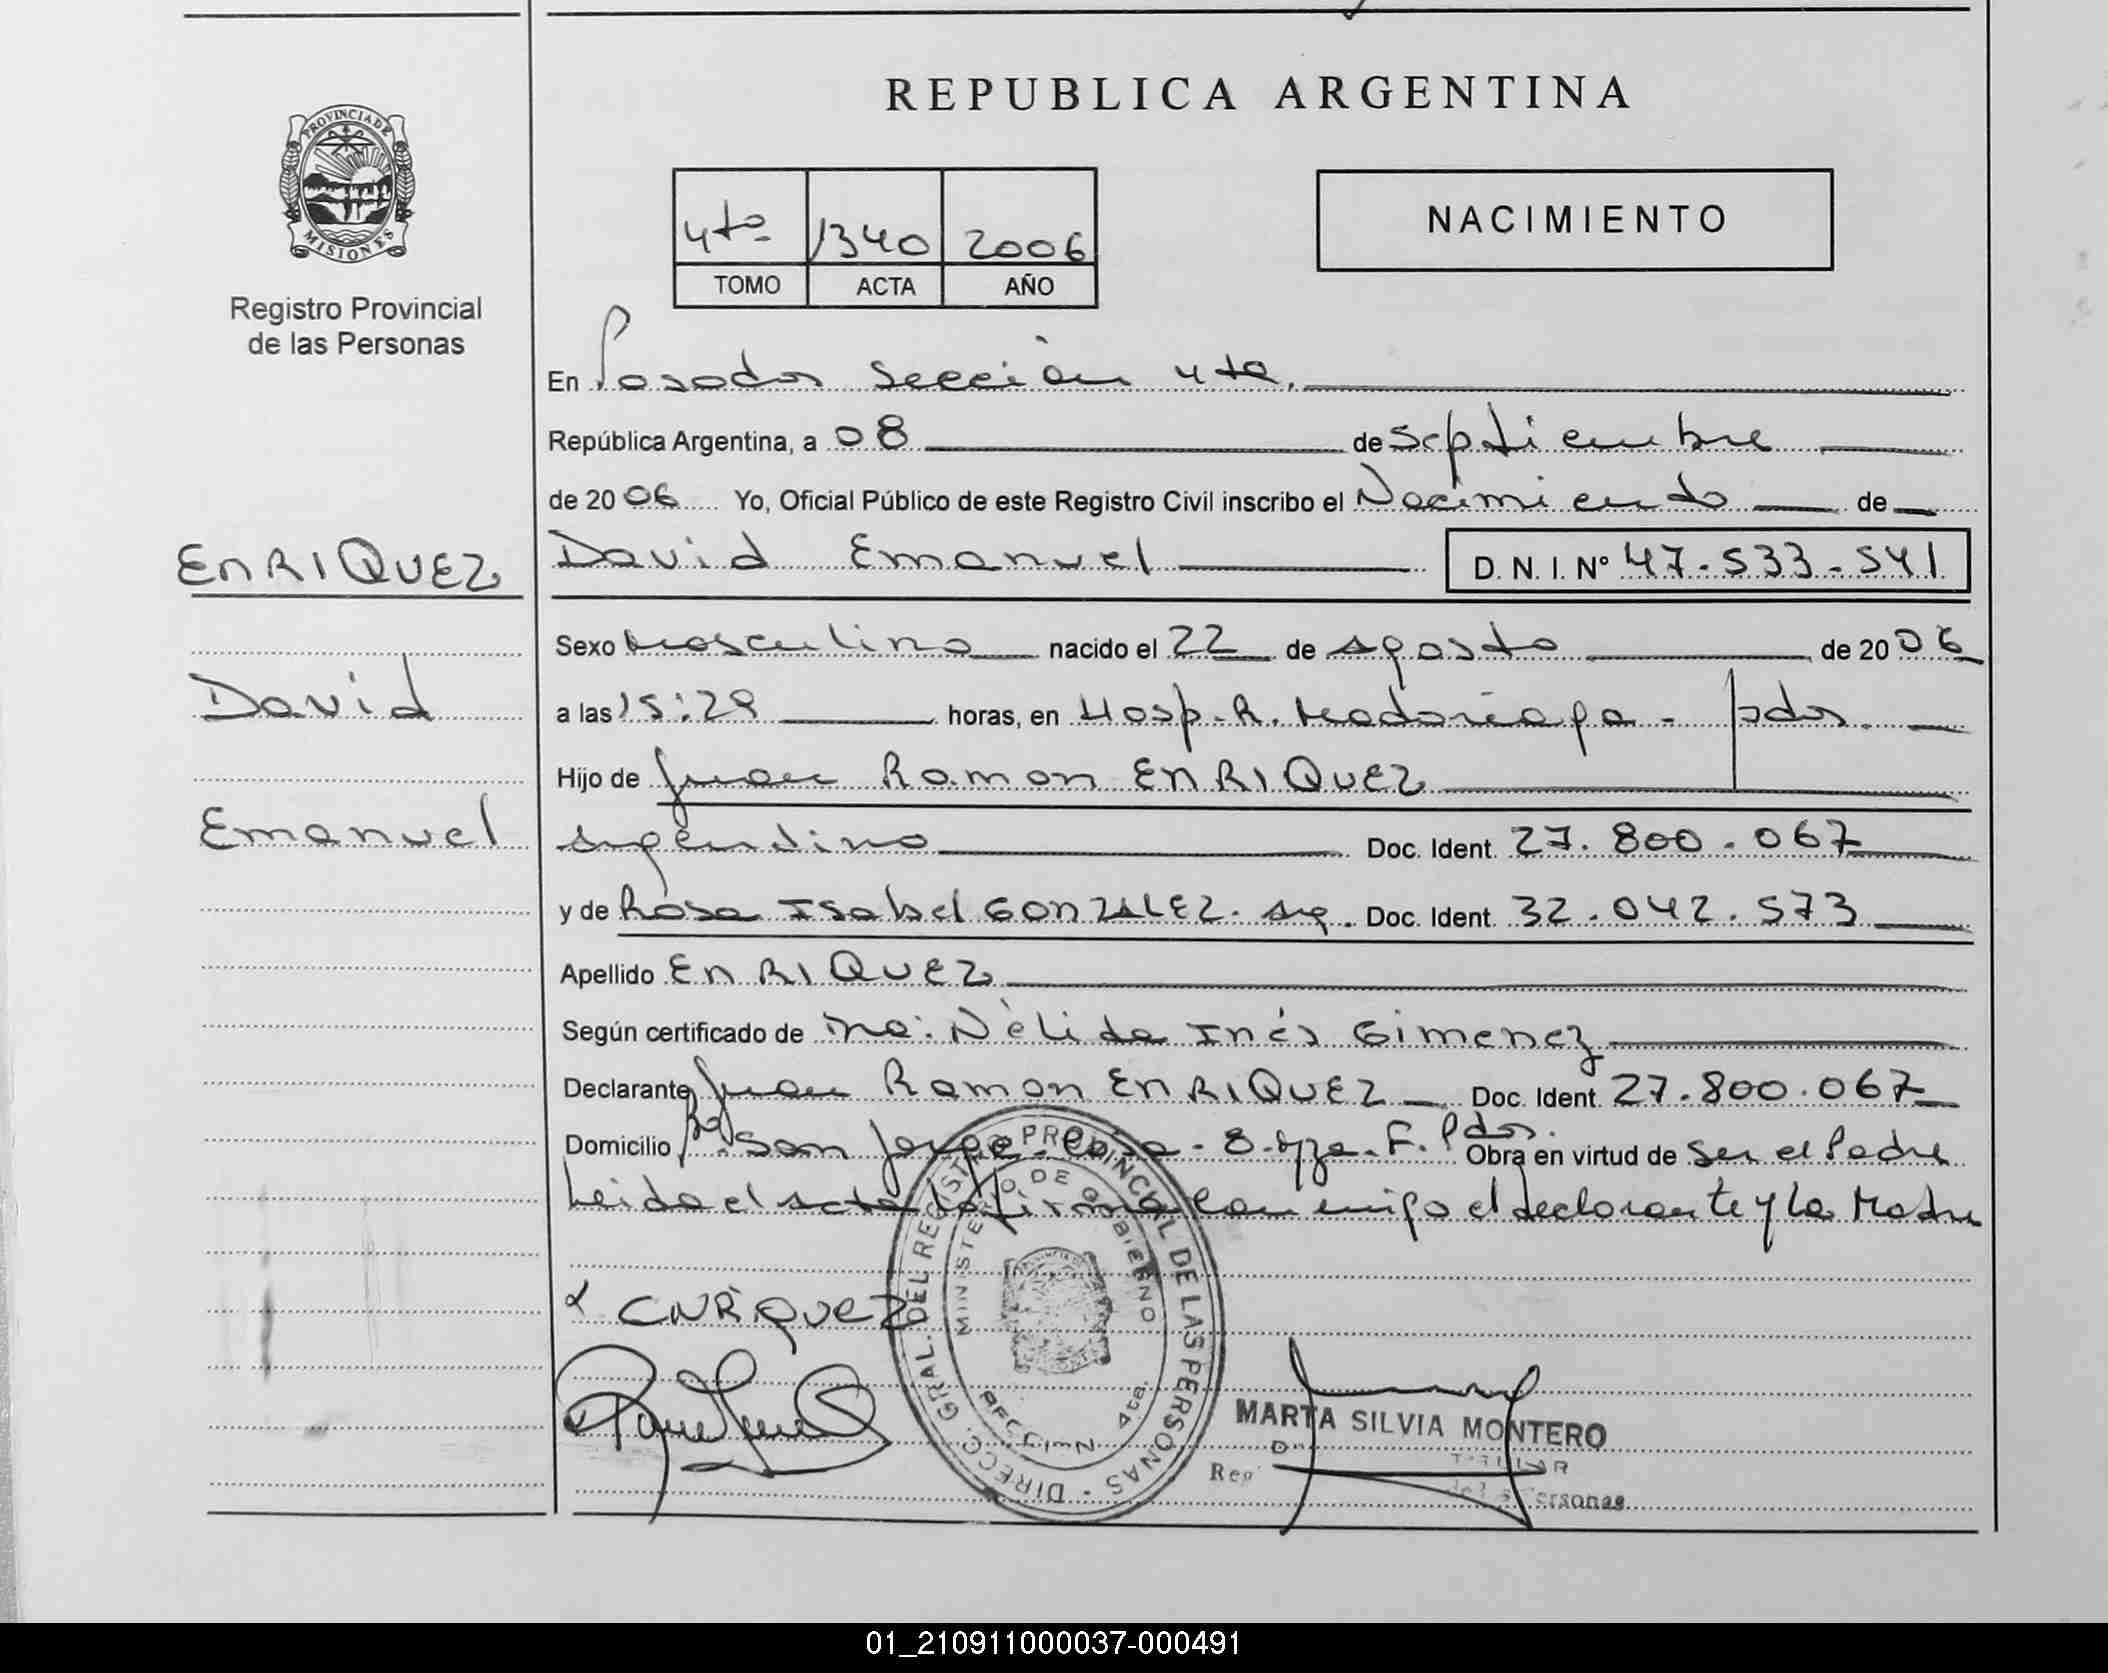 REPUBLICA ARGENTINA
PROVINCIA DE
MISIONES
Registro Provincial
de las Personas
4to 1340 2006
TOMO ACTA AÑO
NACIMIENTO
En Posadas Sección 4ta.
República Argentina, a 08 de Septiembre
de 2006 Yo, Oficial Público de este Registro Civil inscribo el Nacimiento de
ENRIQUEZ
David Emanuel D. N. I. Nº 47.533.541
Sexo Masculino nacido el 22 de agosto de 2006
David
a las 15:29 horas, en Hosp. R. Madariaga - Pdas.
Hijo de Juan Ramon ENRIQUEZ
Emanuel
argentino Doc. Ident. 27.800.067
y de Rosa Isabel GONZALEZ. arg. Doc. Ident. 32.042.573
Apellido ENRIQUEZ
Según certificado de Nélida Inés Gimenez
Declarante Juan Ramon ENRIQUEZ Doc. Ident. 27.800.067
Domicilio San Jorge F. Pdas. Obra en virtud de Ser el Padre
Leida el acta la firma conmigo el declarante y la Madre
ENRiQUEZ
DIRECC. GRAL. DEL REGISTRO PROVINCIAL DE LAS PERSONAS
MINISTERIO DE GOBIERNO
SECCION 4ta
MARTA SILVIA MONTERO
TITULAR
Reg de las Personas
01_210911000037-000491